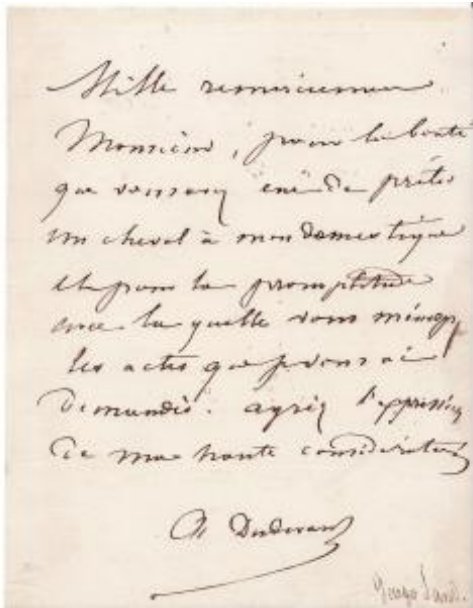 Mille remerciemens
Monsieur, pour la bonté
que vous avez eue de prêter
un cheval à mon domestique
et pour la promptitude
avec laquelle vous
les actes que je vous ai
demandés. agréez l'expression
de ma haute considération
A Dudevant
George Sand.